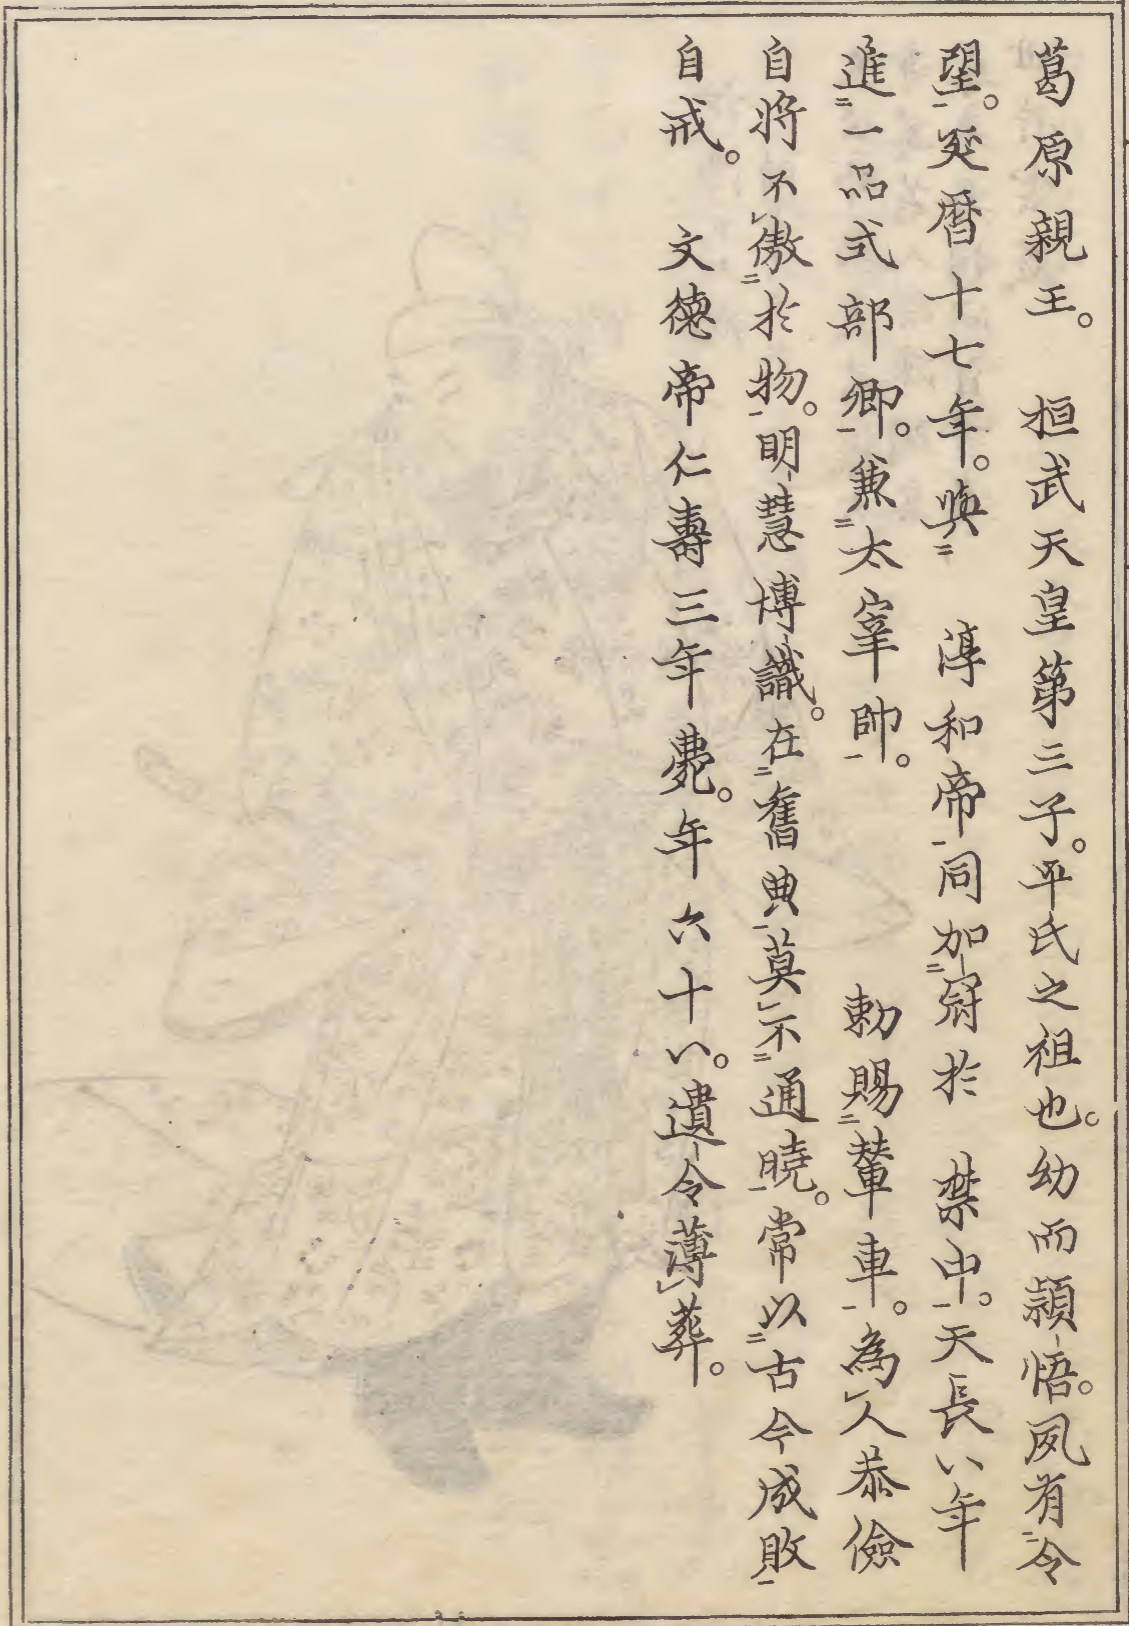 葛原親王。　桓武天皇第三子。平氏之祖也。幼而頴悟。夙有令
望。延暦十七年。與　淳和帝同加冠於　禁中。天長八年
進一品式部卿。兼太宰帥。　勅賜輦車。為人恭儉
自将不傲於物。明慧博識。在舊典莫不通暁。常以古今成敗
自戒。　文徳帝仁壽三年薨。年六十八。遺令薄葬。